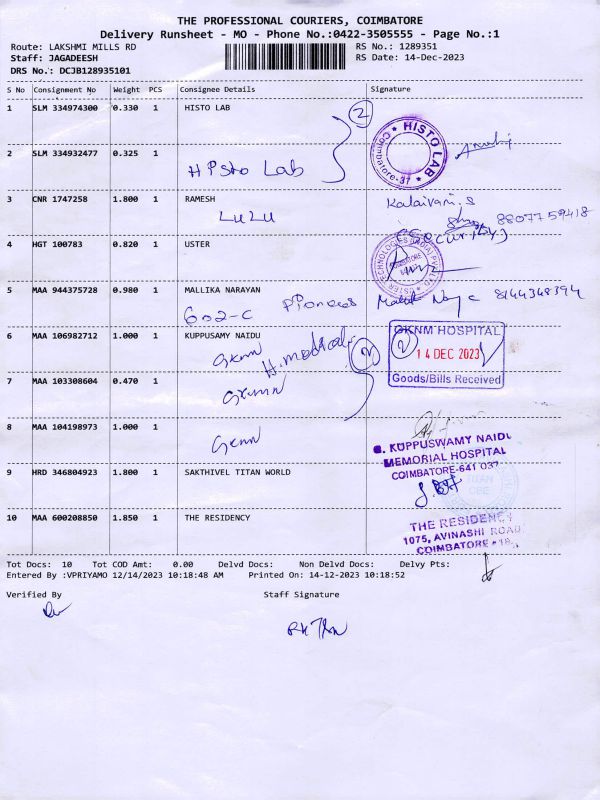 THE PROFESSIONAL COURIERS, COIMBATORE
Delivery Runsheet - MO - Phone No.:0422-3505555 - Page No.:1
Route: LAKSHMI MILLS RD
RS No.: 1289351
Staff: JAGADEESH
RS Date: 14-Dec-2023
DRS No.: DCJB128935101
S No Consignment No Weight PCS Consignee Details Signature
1 SLM 334974300 0.330 1 HISTO LAB
2
HISTO LAB
Coimbatore-37
2 SLM 334932477 0.325 1
HPsto Lab
3 CNR 1747258 1.800 1 RAMESH
Kalaivani.s
LULU
8807759418
(Security)
4 HGT 100783 0.820 1 USTER
5 MAA 944375728 0.980 1 MALLIKA NARAYAN
602-C
8144348394
6 MAA 106982712 1.000 1 KUPPUSAMY NAIDU
GKNM HOSPITAL
14 DEC 2023
Goods/Bills Received
Gknm
H.medical
2
7 MAA 103308604 0.470 1
8 MAA 104198973 1.000 1
G. KUPPUSWAMY NAIDU
MEMORIAL HOSPITAL
COIMBATORE-641 037
9 HRD 346804923 1.800 1 SAKTHIVEL TITAN WORLD
10 MAA 600208850 1.850 1 THE RESIDENCY
THE RESIDENCY
1075, AVINASHI ROAD
COIMBATORE - 18.
Tot Docs: 10 Tot COD Amt: 0.00 Delvd Docs: Non Delvd Docs: Delvy Pts:
Entered By :VPRIYAMO 12/14/2023 10:18:48 AM Printed On: 14-12-2023 10:18:52
Verified By Staff Signature